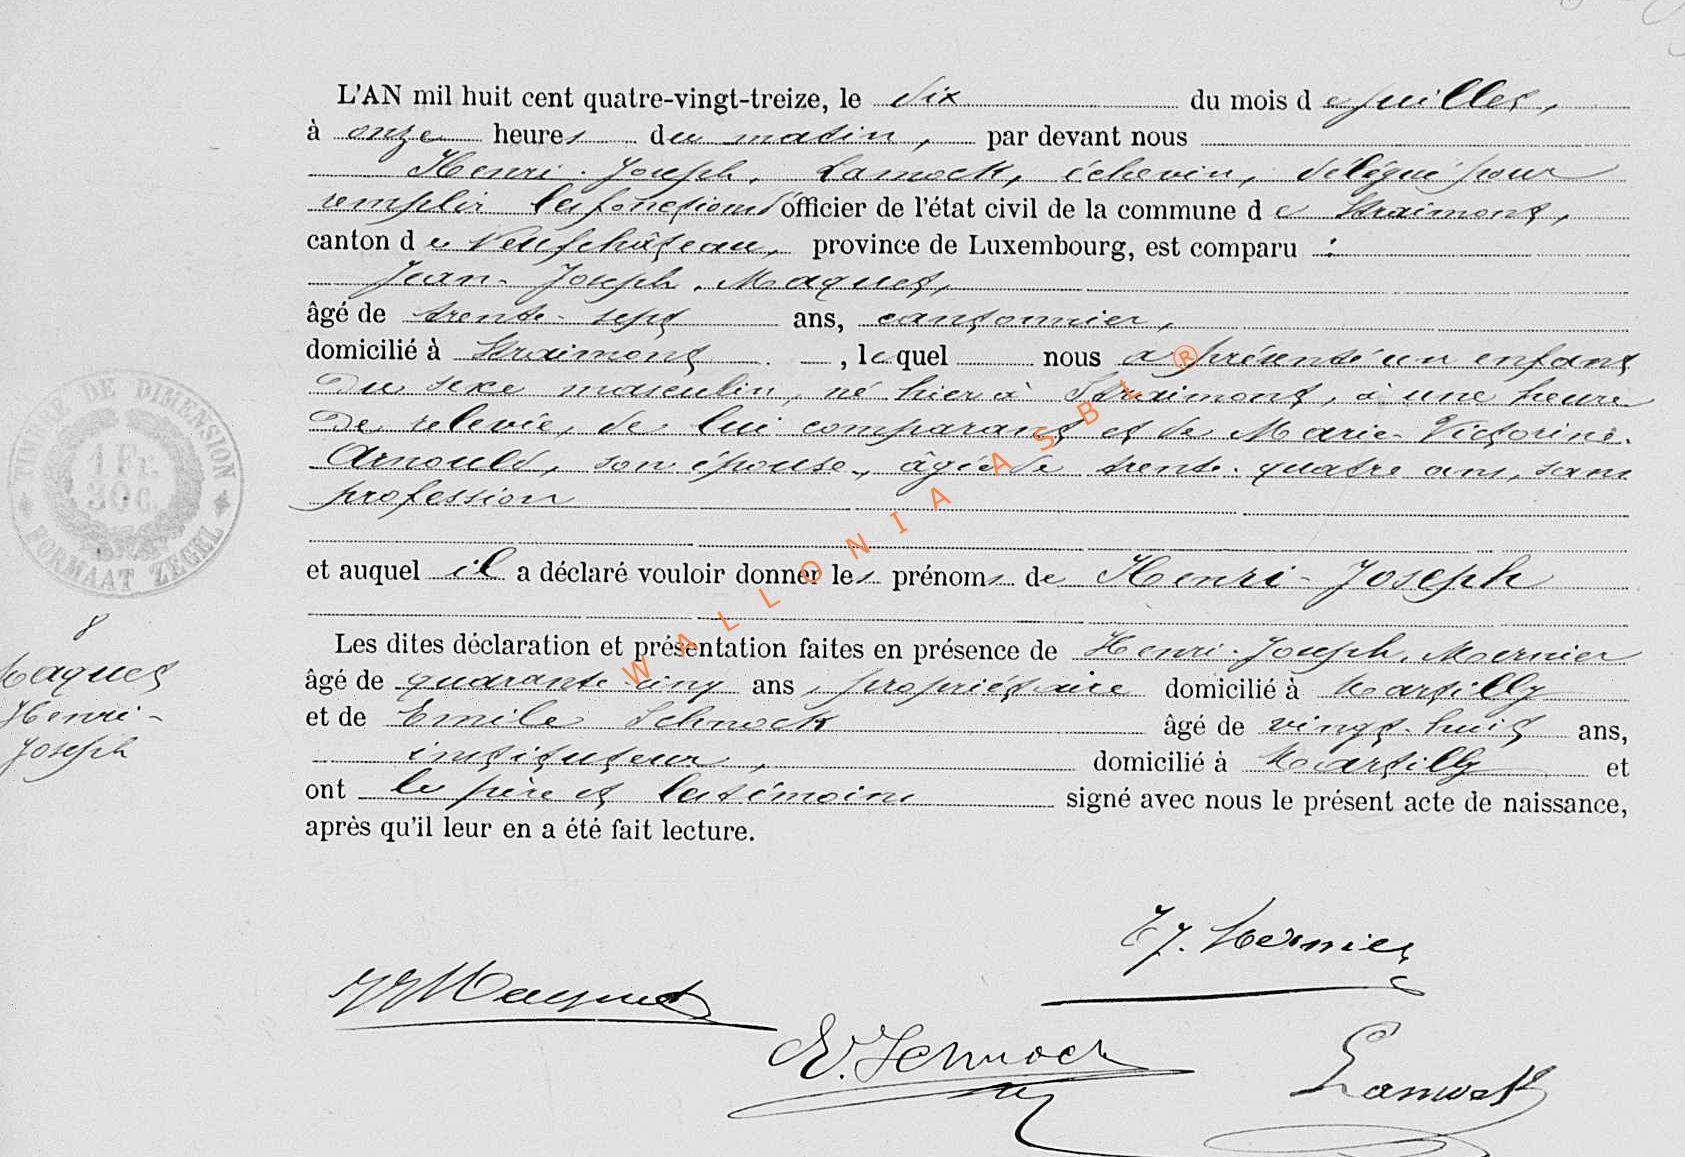 L'AN mil huit cent quatre-vingt-treize, le six du mois de juillet,
à onze heures du matin, par devant nous
Henri-Joseph, Lamock, échevin, délégué pour
remplir les fonctions d'officier de l'état civil de la commune de Straimont,
canton de Neufchâteau, province de Luxembourg, est comparu :
Jean-Joseph, Maquet,
âgé de trente-sept ans, cantonnier,
domicilié à Straimont, lequel nous a présenté un enfant
du sexe masculin, né hier à Straimont, à une heure
de relevée, de lui comparant et de Marie-Victorine
Arnould, son épouse, âgée de trente-quatre ans, sans
profession
et auquel il a déclaré vouloir donner les prénoms de Henri-Joseph
Les dites déclaration et présentation faites en présence de Henri-Joseph, Mernier
âgé de quarante-cinq ans, propriétaire domicilié à Martilly
et de Emile Schnock âgé de vingt-huit ans,
instituteur, domicilié à Martilly et
ont le père et les témoins signé avec nous le présent acte de naissance,
après qu'il leur en a été fait lecture.
TIMBRE DE DIMENSION
1 Fr.
30 C.
FORMAAT ZEGEL
8
Maquet
Henri-
Joseph
HJ. Mernier
JJ Maquet
E. Schnock
Lamock
WALLONIA ASBL ®